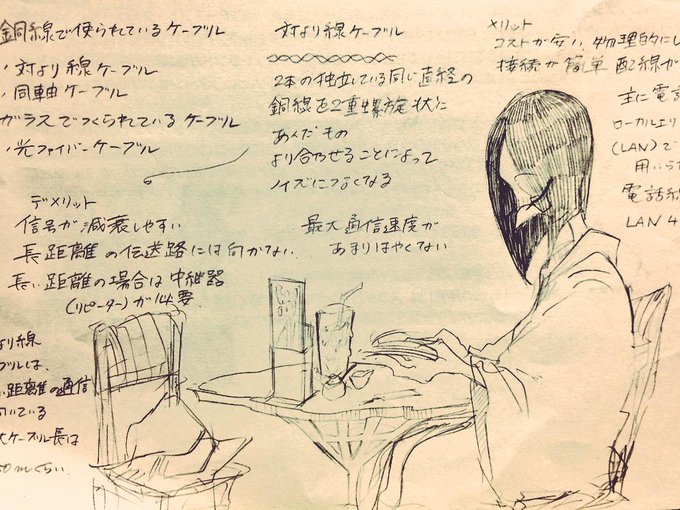 銅線で使られているケーブル
・対より線ケーブル
・同軸ケーブル
ガラスでつくられているケーブル
・光ファイバーケーブル
デメリット
信号が減衰しやすい
長距離の伝送路には向かない
長い距離の場合は中継器
(リピーター)が必要
より線
ブルは、
い距離の通信
向いている
大ケーブル長は
対より線ケーブル
2本の独立している同じ直経の
銅線を2重螺旋状に
あんだもの
より合わせることによって
ノイズにつよくなる
最大通信速度が
あまりはやくない
メリット
コストが安い 物理的にし
接続が簡単 配線が
主に電話
ローカルエリ
(LAN)で
用いら
電話線
LAN 4